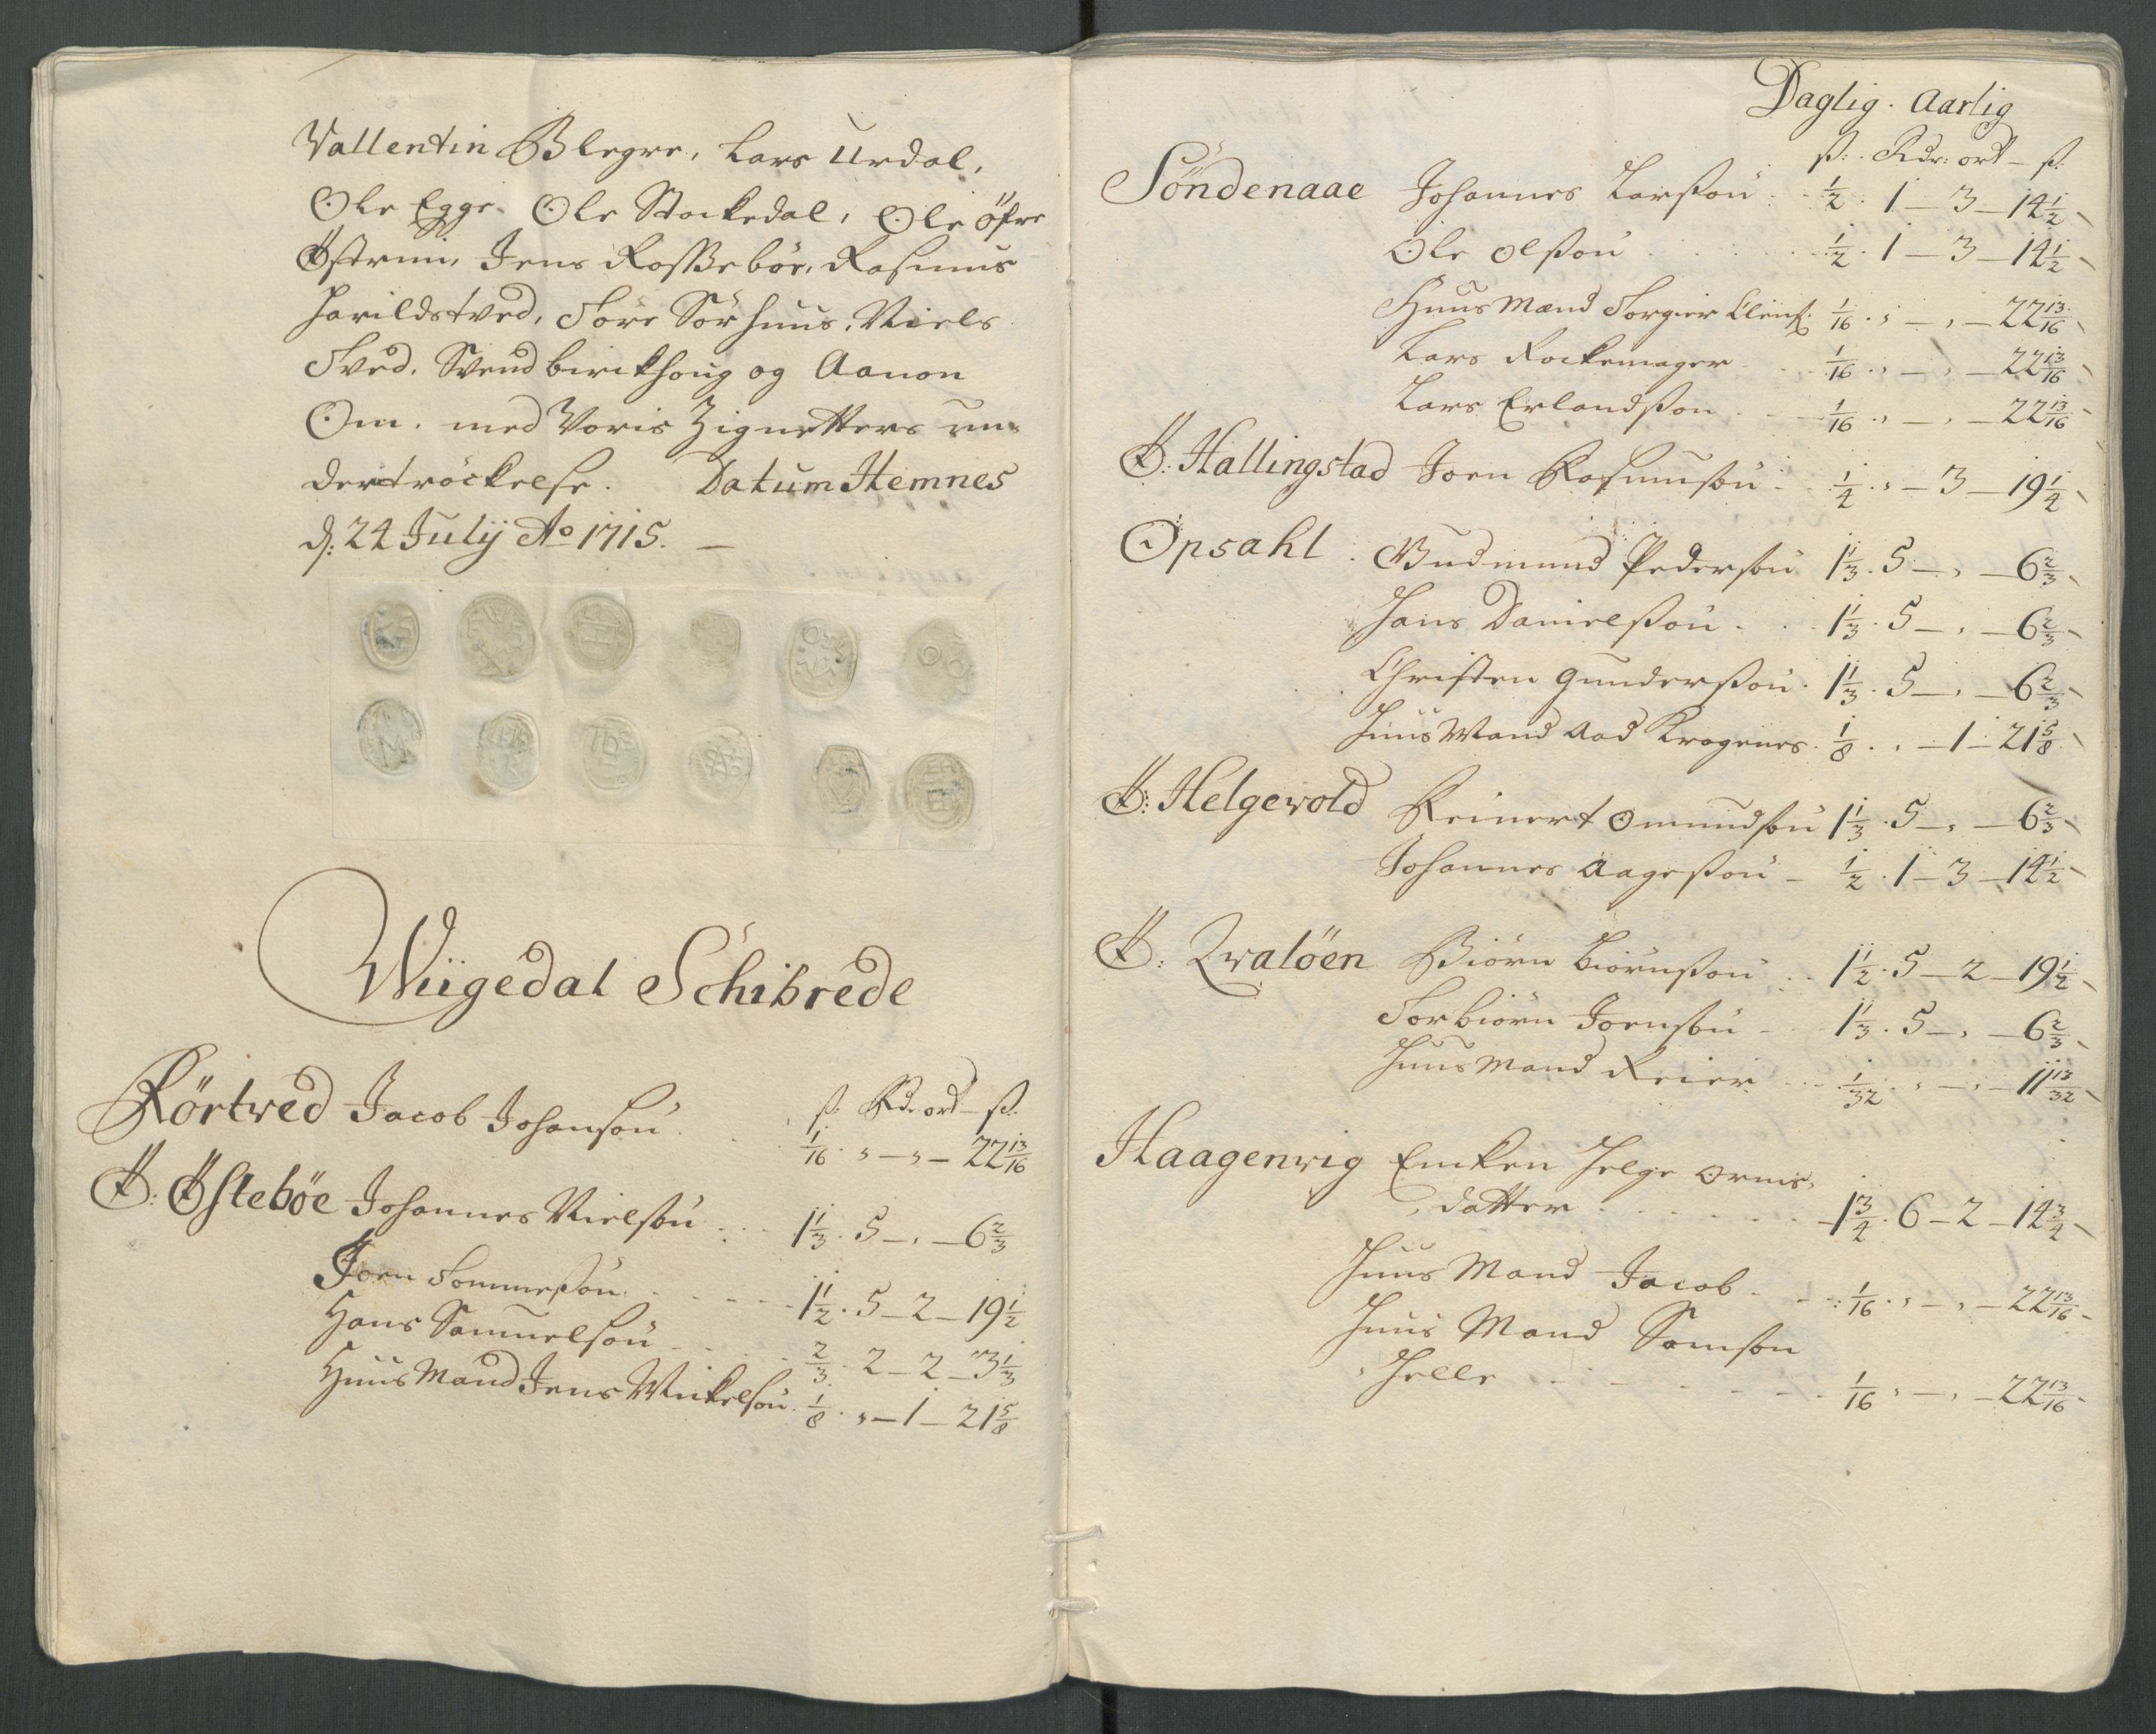 Vallentin Blegre, Lars Urdal,
Ole Egge, Ole Stockedal, Ole öfre
Østrim, Jens Rossebör, Rasmus
Harildstved, Tore Sörhuus, Niels
Tved, Svend birckhoug og Aanon
Om, med Voris Zignetters un-
dertröckelse. Datum Hemnes
d: 24 Julij Ao 1715. —
Wiigedal Schibrede
ß: Rdr ort – ß:
Rörtved Jacob Johanson . . 1/16 . „ – „ – 22 13/16
Ø: Østeböe Johannes Nielson . . . 1 1/3 . 5 – „ – 6 2/3
Joen Tommesson . . . . 1 1/2 . 5 – 2 – 19 1/2
Hans Samuelson . . . . 2/3 . 2 – 2 – 3 1/3
Huus Mand Jens Mickelson . 1/8 . „ – 1 – 21 5/8
Daglig . Aarlig
ß: . Rdr: ort – ß:
Söndenaae Johannes Larsson . . 1/2 . 1 – 3 – 14 1/2
Ole Olsson . . . . . 1/2 . 1 – 3 – 14 1/2
Huus Mænd Torgier 1/16 . „ – „ – 22 13/16
Lars Rockemager . . . 1/16 . „ – „ – 22 13/16
Lars Erlandsson . . . 1/16 . „ – „ – 22 13/16
Ø: Hallingstad Joen Rasmuson . . 1/4 . „ – 3 – 19 1/4
Opsahl . Gudmund Pederson 1 1/3 . 5 – „ – 6 2/3
Hans Danielsson . . . 1 1/3 . 5 – „ – 6 2/3
Christen Gundersson . 1 1/3 . 5 – „ – 6 2/3
Huus Mand Aad Krogenes . 1/8 . „ – 1 – 21 5/8
Ø: Helgevold Reinert Omundson 1 1/3 . 5 – „ – 6 2/3
Johannes Aagesson – 1/2 . 1 – 3 – 14 1/2
Ø: Qvalöen Biörn Biörnsson . . 1 1/2 . 5 – 2 – 19 1/2
Torbiörn Joenson – 1 1/3 . 5 – „ – 6 2/3
Huus Mand Reier . . . 1/32 . „ – „ – 11 13/32
Haagenvig Encken Helge Orms-
datter . . . . . . 1 3/4 . 6 – 2 – 14 3/4
Huus Mand Jacob . . . 1/16 . „ – „ – 22 13/16
Huus Mand Samson
Helle . . . . . . 1/16 . „ – „ – 22 13/16